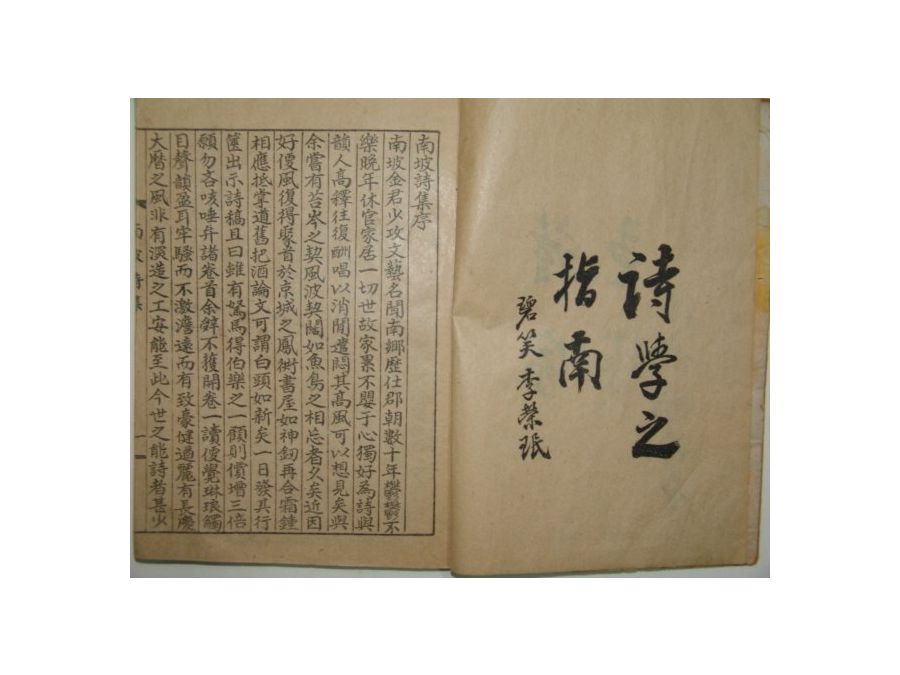 詩學之
指南
碧笑 李榮珉
南坡詩集序
南坡金君少攻文藝名聞南鄕歷仕郡朝數十年鬱鬱不
樂晚年休官家居一切世故家累不嬰于心獨好為詩與
韻人高釋往復酬唱以消閒遣悶其高風可以想見矣與
余嘗有苔岑之契風波契闊如魚鳥之相忘者久矣近因
好便風復得聚首於京城之鳳衕書屋如神釰再合霜鍾
相應抵掌道舊把酒論文可謂白頭如新矣一日發其行
篋出示詩稿且曰雖有駑馬得伯樂之一顧則價增三倍
願勿吝咳唾弁諸卷首余辭不獲開卷一讀便覺琳琅觸
目聲韻盈耳牢騷而不激澹遠而有致豪健遒麗有長慶
大曆之風非有深造之工安能至此今世之能詩者甚少
南坡詩集
一